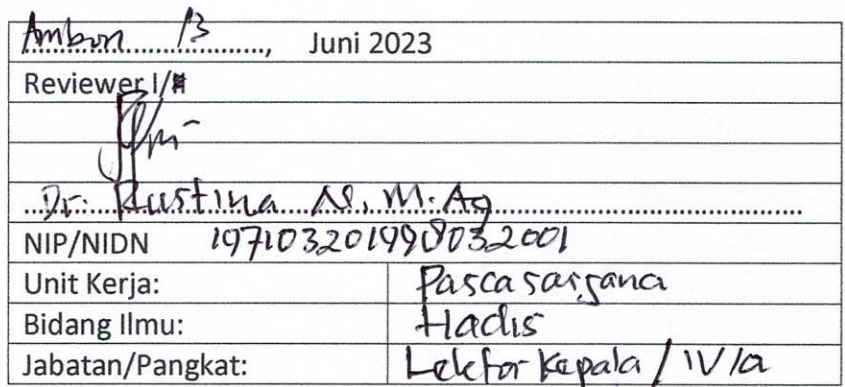 Ambon, 13 Juni 2023
Reviewer I/II
Dr. Rustina N, M.Ag
NIP/NIDN 197103201998032001
Unit Kerja: Pascasarjana
Bidang Ilmu: Hadis
Jabatan/Pangkat: Lektor Kepala / IV/a